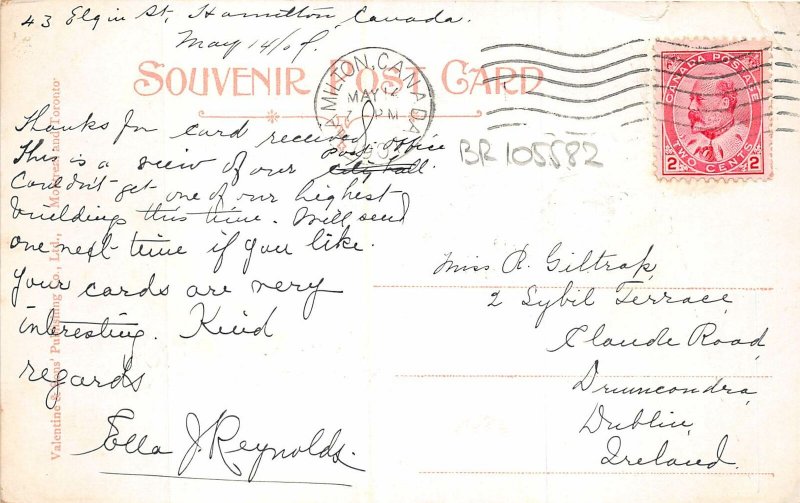 43 Elgin St, Hamilton, Canada.
May 14/09.
SOUVENIR POST CARD
HAMILTON, CANADA
MAY 14
PM
CANADA POSTAGE
2 TWO CENTS 2
BR 105582
Thanks for card received
This is a view of our Post Office
city hall.
Couldn't get one of our highest
building this time. Will send
one next time if you like.
Your cards are very
interesting. Kind
regards
Ella J. Reynolds.
Miss R. Giltrap,
2 Sybil Terrace,
Claude Road,
Drumcondra,
Dublin,
Ireland.
Valentine & Sons' Publishing Co., Ltd., Montreal and Toronto